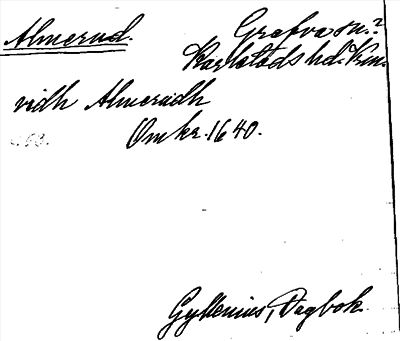 Almerud.
Grafva sn.?
Karlstads hd. Vrm.
vidh Almerudh
Omkr. 1640.
Gyllenius, Dagbok.